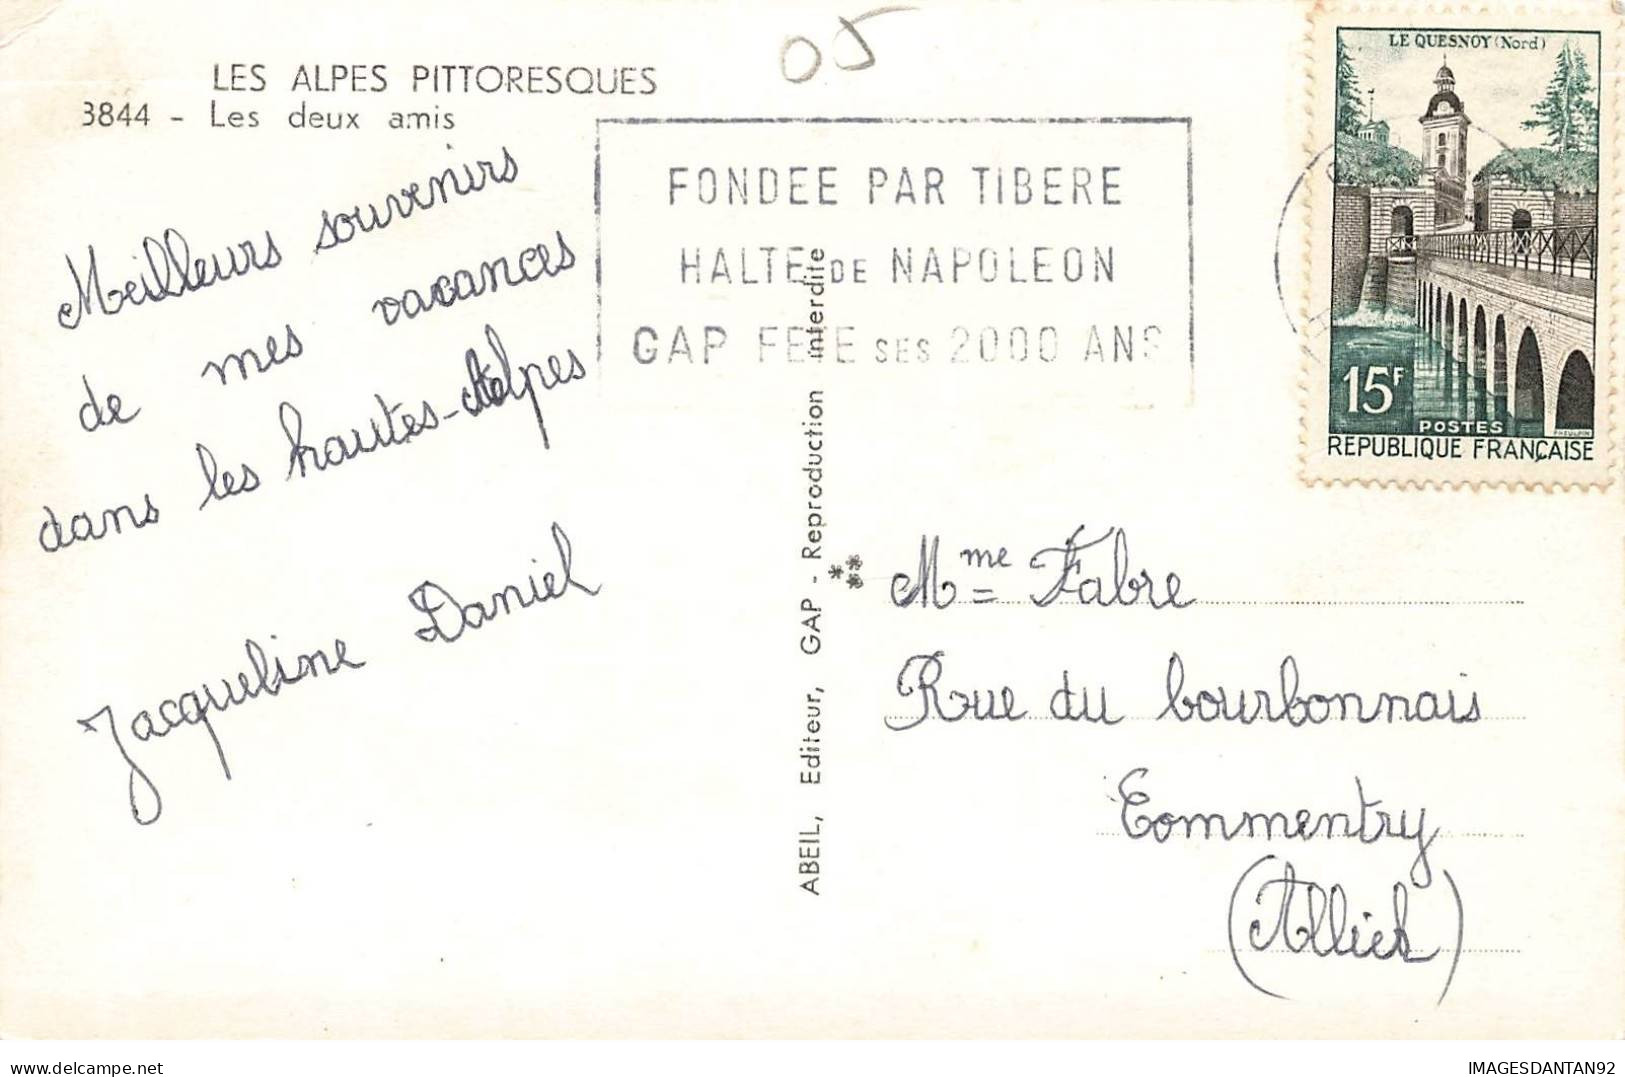 05
LES ALPES PITTORESQUES
3844 - Les deux amis
Meilleurs souvenirs
de mes vacances
dans les hautes-Alpes
Jacqueline Daniel
FONDEE PAR TIBERE
HALTE DE NAPOLEON
GAP FETE SES 2000 ANS
ABEIL, Editeur, GAP - Reproduction interdite
LE QUESNOY (Nord)
15F
POSTES
RÉPUBLIQUE FRANÇAISE
Mme Fabre
Rue du bourbonnais
Commentry
(Allier)
IMAGESDANTAN92